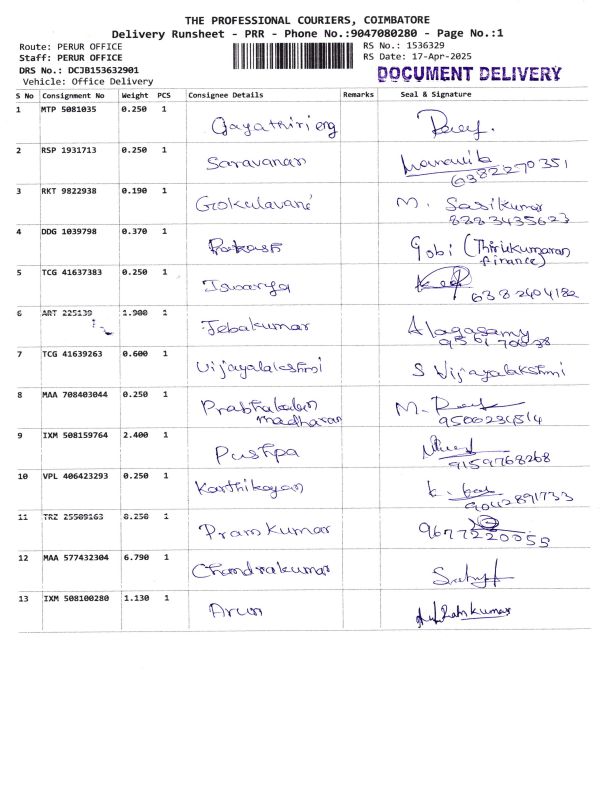 THE PROFESSIONAL COURIERS, COIMBATORE
Delivery Runsheet - PRR - Phone No.:9047080280 - Page No.:1
Route: PERUR OFFICE RS No.: 1536329
Staff: PERUR OFFICE RS Date: 17-Apr-2025
DRS No.: DCJB153632901 DOCUMENT DELIVERY
Vehicle: Office Delivery
S No Consignment No Weight PCS Consignee Details Remarks Seal & Signature
1 MTP 5081035 0.250 1 Gayathirieng
2 RSP 1931713 0.250 1 Saravanan
6382270351
3 RKT 9822938 0.190 1 Gokulavani M. Sasikumar
8883435623
4 DDG 1039798 0.370 1 Prakash Gobi (Thirukumaran
finance)
5 TCG 41637383 0.250 1 Iswarya
6382404182
6 ART 225139 1.900 1 Jebakumar Alagasamy
7 TCG 41639263 0.600 1 Vijayalakshmi S Vijayalakshmi
8 MAA 708403044 0.250 1 M.
madharan
9 IXM 508159764 2.400 1 Pushpa
9159768268
10 VPL 406423293 0.250 1 Karthikeyan K.
9042891733
11 TRZ 25589163 8.250 1 Pramkumar 9677220055
12 MAA 577432304 6.790 1 Chandrakumar
13 IXM 508100280 1.130 1 Arun Ramkumar